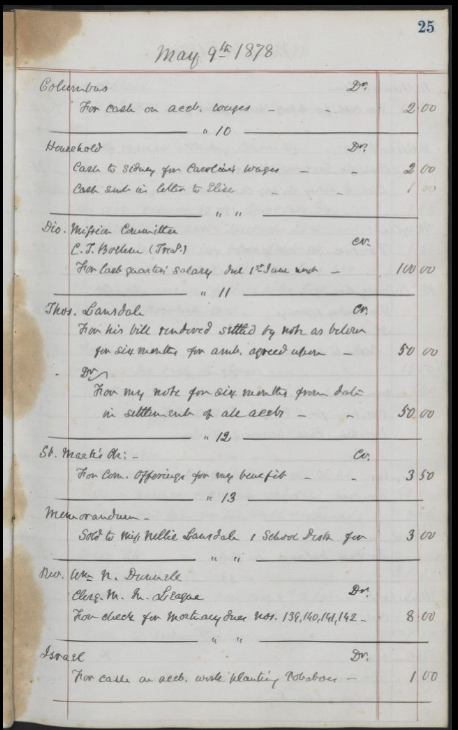 25
May 9th 1878
Columbus Dr.
For cash on acct. wages - - 2 00
" 10
Household Dr.
Cash to Sidney for Caroline's wages - - 2 00
Cash sent in letter to Elise - - 1 00
" "
Dio. Mission Committee
C. T. (Treas.) Cr.
For last quarter's salary due 1st June next - 100 00
" 11
Thos. Lansdale Cr.
For his bill rendered settled by note as below
for six months for amt. agreed upon - 50 00
Dr.
For my note for six months from date
in settlement of all accts - - 50 00
" 12
St. Mark's Ch: - Cr.
For Com. Offerings for my benefit - - 3 50
" 13
Memorandum -
Sold to Miss Nellie Lansdale 1 School Desk for 3 00
" "
Rev. Wm. N.
Clerg. M. In. League Dr.
For check for Mortuary dues Nos. 139, 140, 141, 142 - 8 00
" "
Israel Dr.
For cash on acct. work planting Potatoes - 1 00